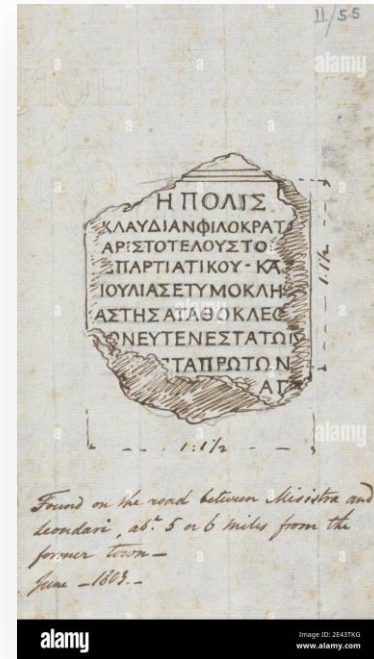 II/55
alamy
Η ΠΟΛΙΣ
ΚΛΑΥΔΙΑΝΦΙΛΟΚΡΑΤ
ΑΡΙΣΤΟΤΕΛΟΥΣΤΟ
ΣΠΑΡΤΙΑΤΙΚΟΥ - ΚΑ
ΙΟΥΛΙΑΣΕΤΥΜΟΚΛΗ
ΑΣΤΗΣΑΤΑΘΟΚΛΕΟ
ΝΕΥΤΕΝΕΣΤΑΤΩ
ΣΤΑΠΡΩΤΩΝ
ΑΓ
1.1½
1:1½
alamy
Found on the road between Misistra and
Leondari, abt 5 or 6 miles from the
former town –
June – 1803. –
alamy
Image ID: 2E43TKG
www.alamy.com